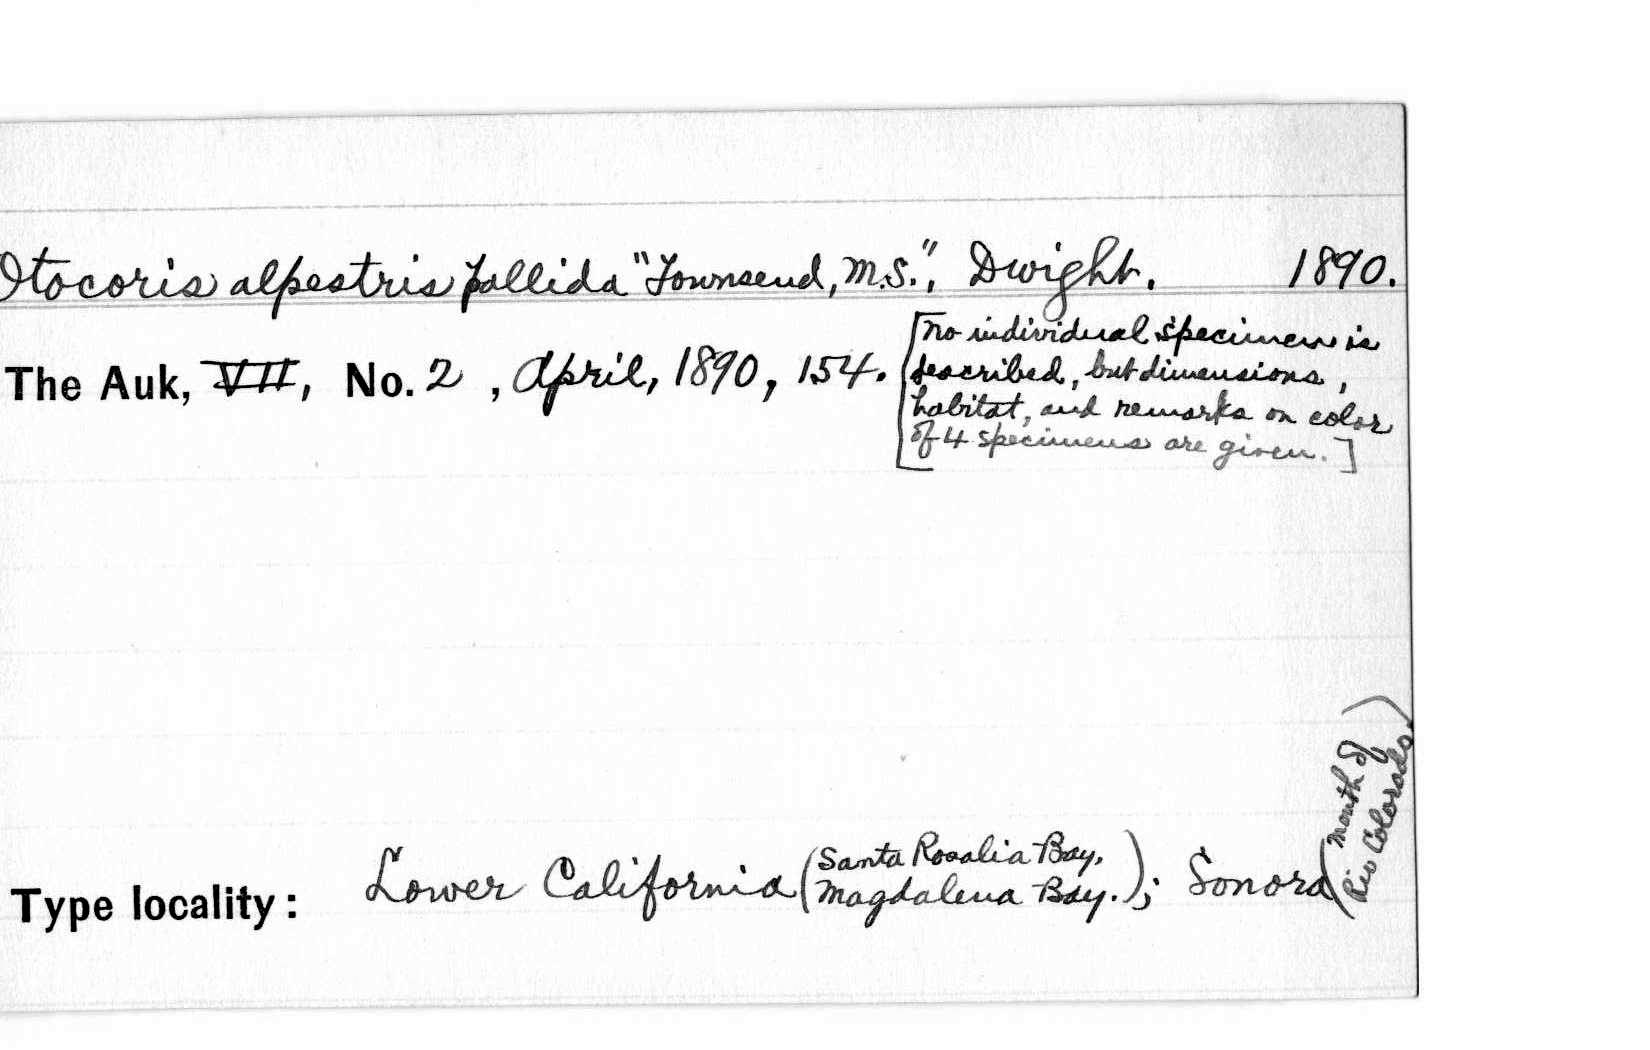 Otocoris alpestris pallida "Townsend, M.S.", Dwight. 1890.
The Auk, VII, No. 2, April, 1890, 154.
[No individual specimen is
described, but dimensions,
habitat, and remarks on color
of 4 specimens are given.]
Type locality: Lower California (Santa Rosalia Bay, Magdalena Bay.); Sonora (mouth of Rio Colorado.)